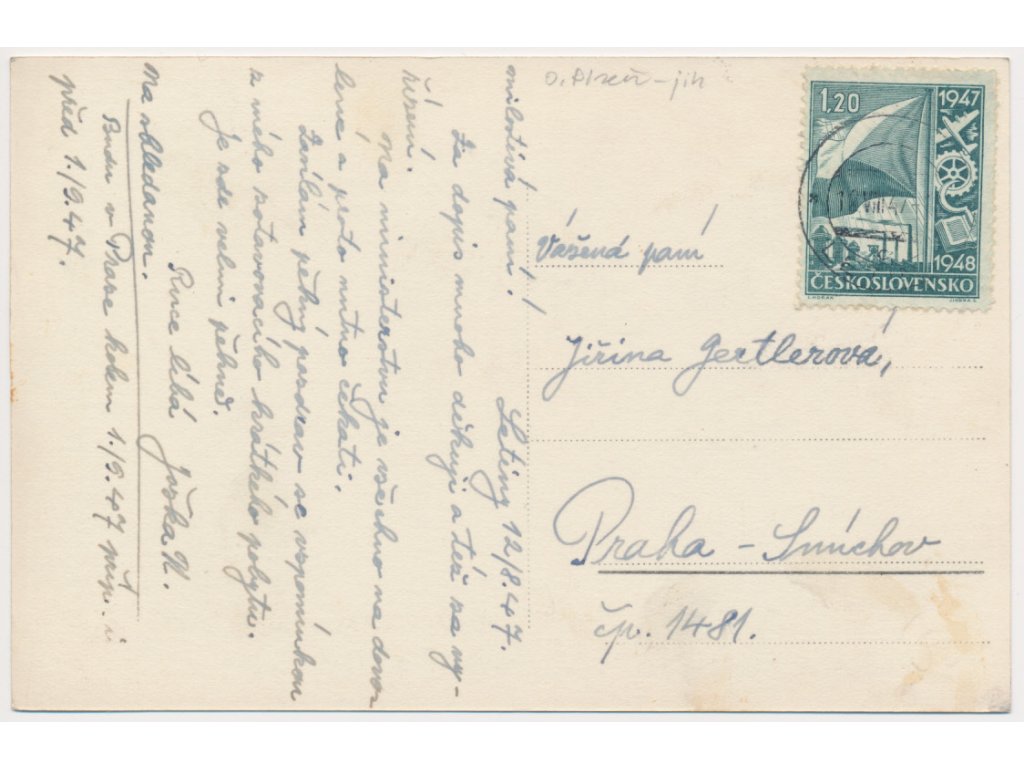 o. Plzeň-jih
1,20
1947
1948
ČESKOSLOVENSKO
VIII 47
Vážená paní
Jiřina Gertlerová,
Praha – Smíchov
čp. 1481.
Letiny 12/8.47.
milostivá paní!
Za dopis mnoho děkuji a též za vy-
řízení.
Na ministerstvu je všechno na dovo-
lené a proto nutno čekati.
Zasílám pěkný pozdrav se vzpomínkou
z mého zotavovacího krátkého pobytu.
Je zde velmi pěkně.
Ruce líbá Joška N.
na shledanou.
Budu v Praze kolem 1./9.47 příp. i
před 1./9.47.